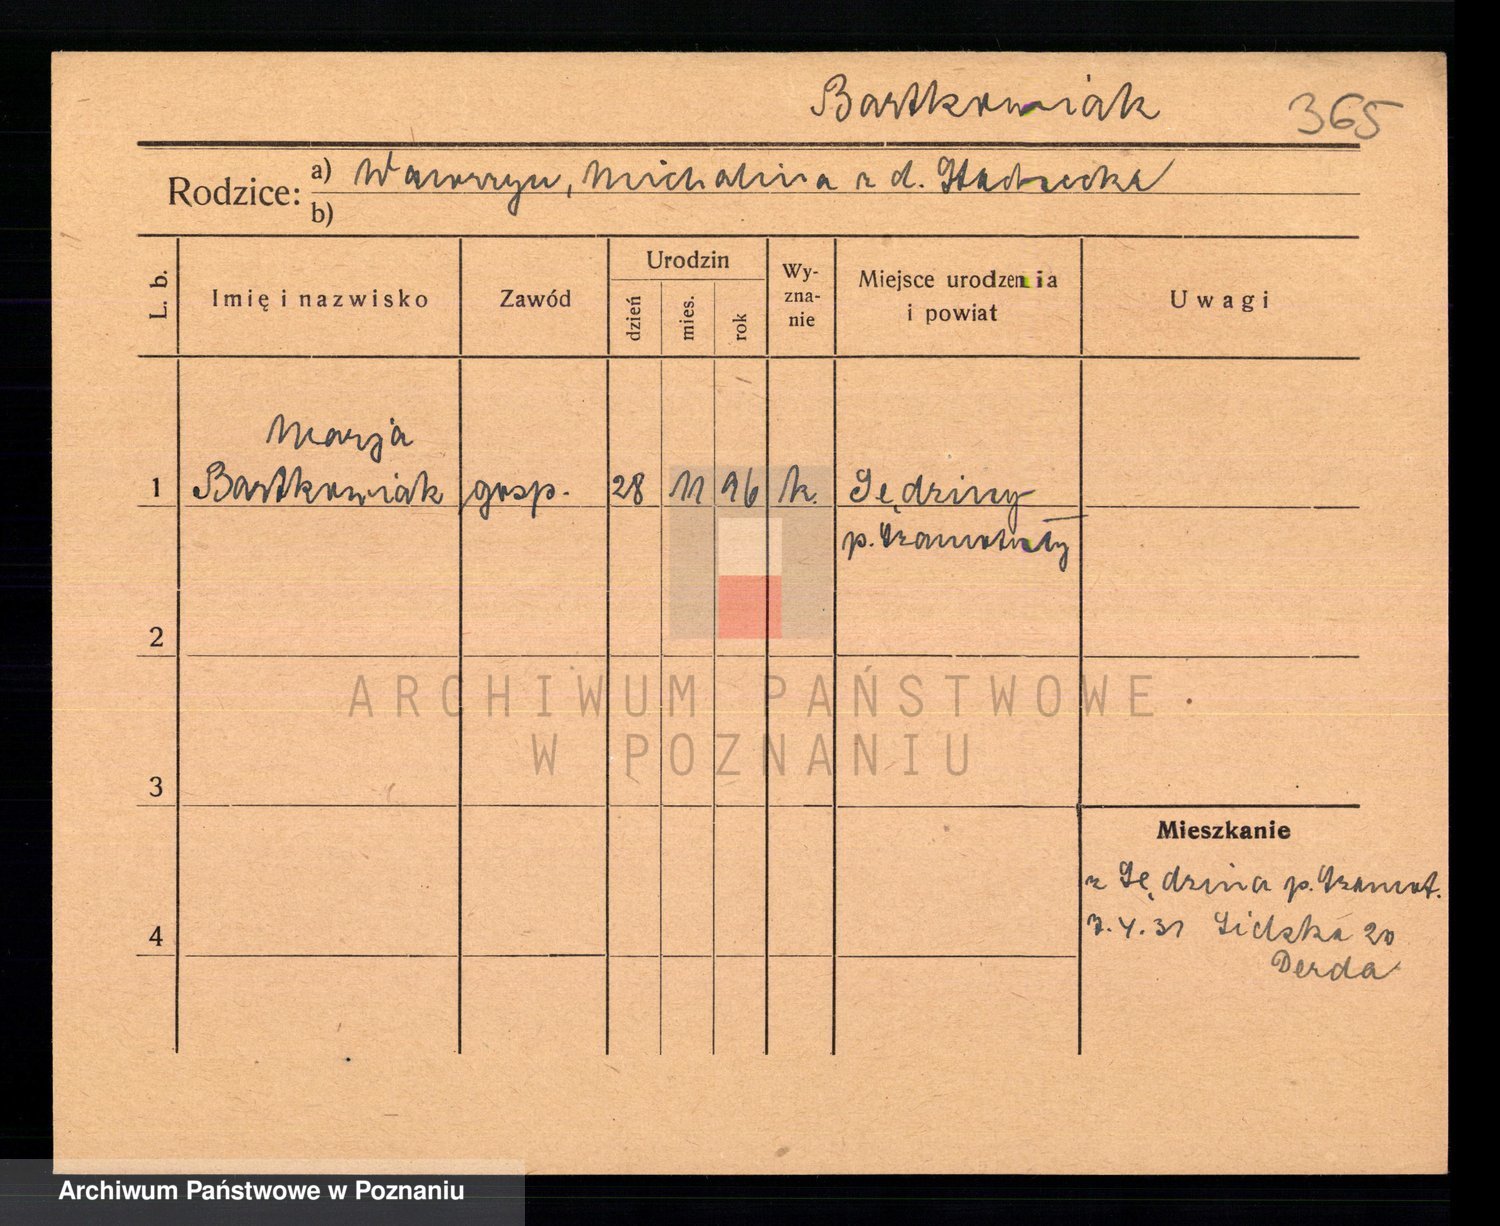 Bartkowiak 365
Rodzice: a) Wawrzyn, Michalina z d.
b)
L. b. Imię i nazwisko Zawód Urodzin dzień mies. rok Wyznanie Miejsce urodzenia i powiat Uwagi
Marja
1 Bartkowiak gosp. 28 11 96 k. Sędziny
p. Szamotuły
2
ARCHIWUM PAŃSTWOWE
W POZNANIU
3
Mieszkanie
z Sędzina p. Szamot.
4 3.4.31 Lidzka 20
Derda
Archiwum Państwowe w Poznaniu